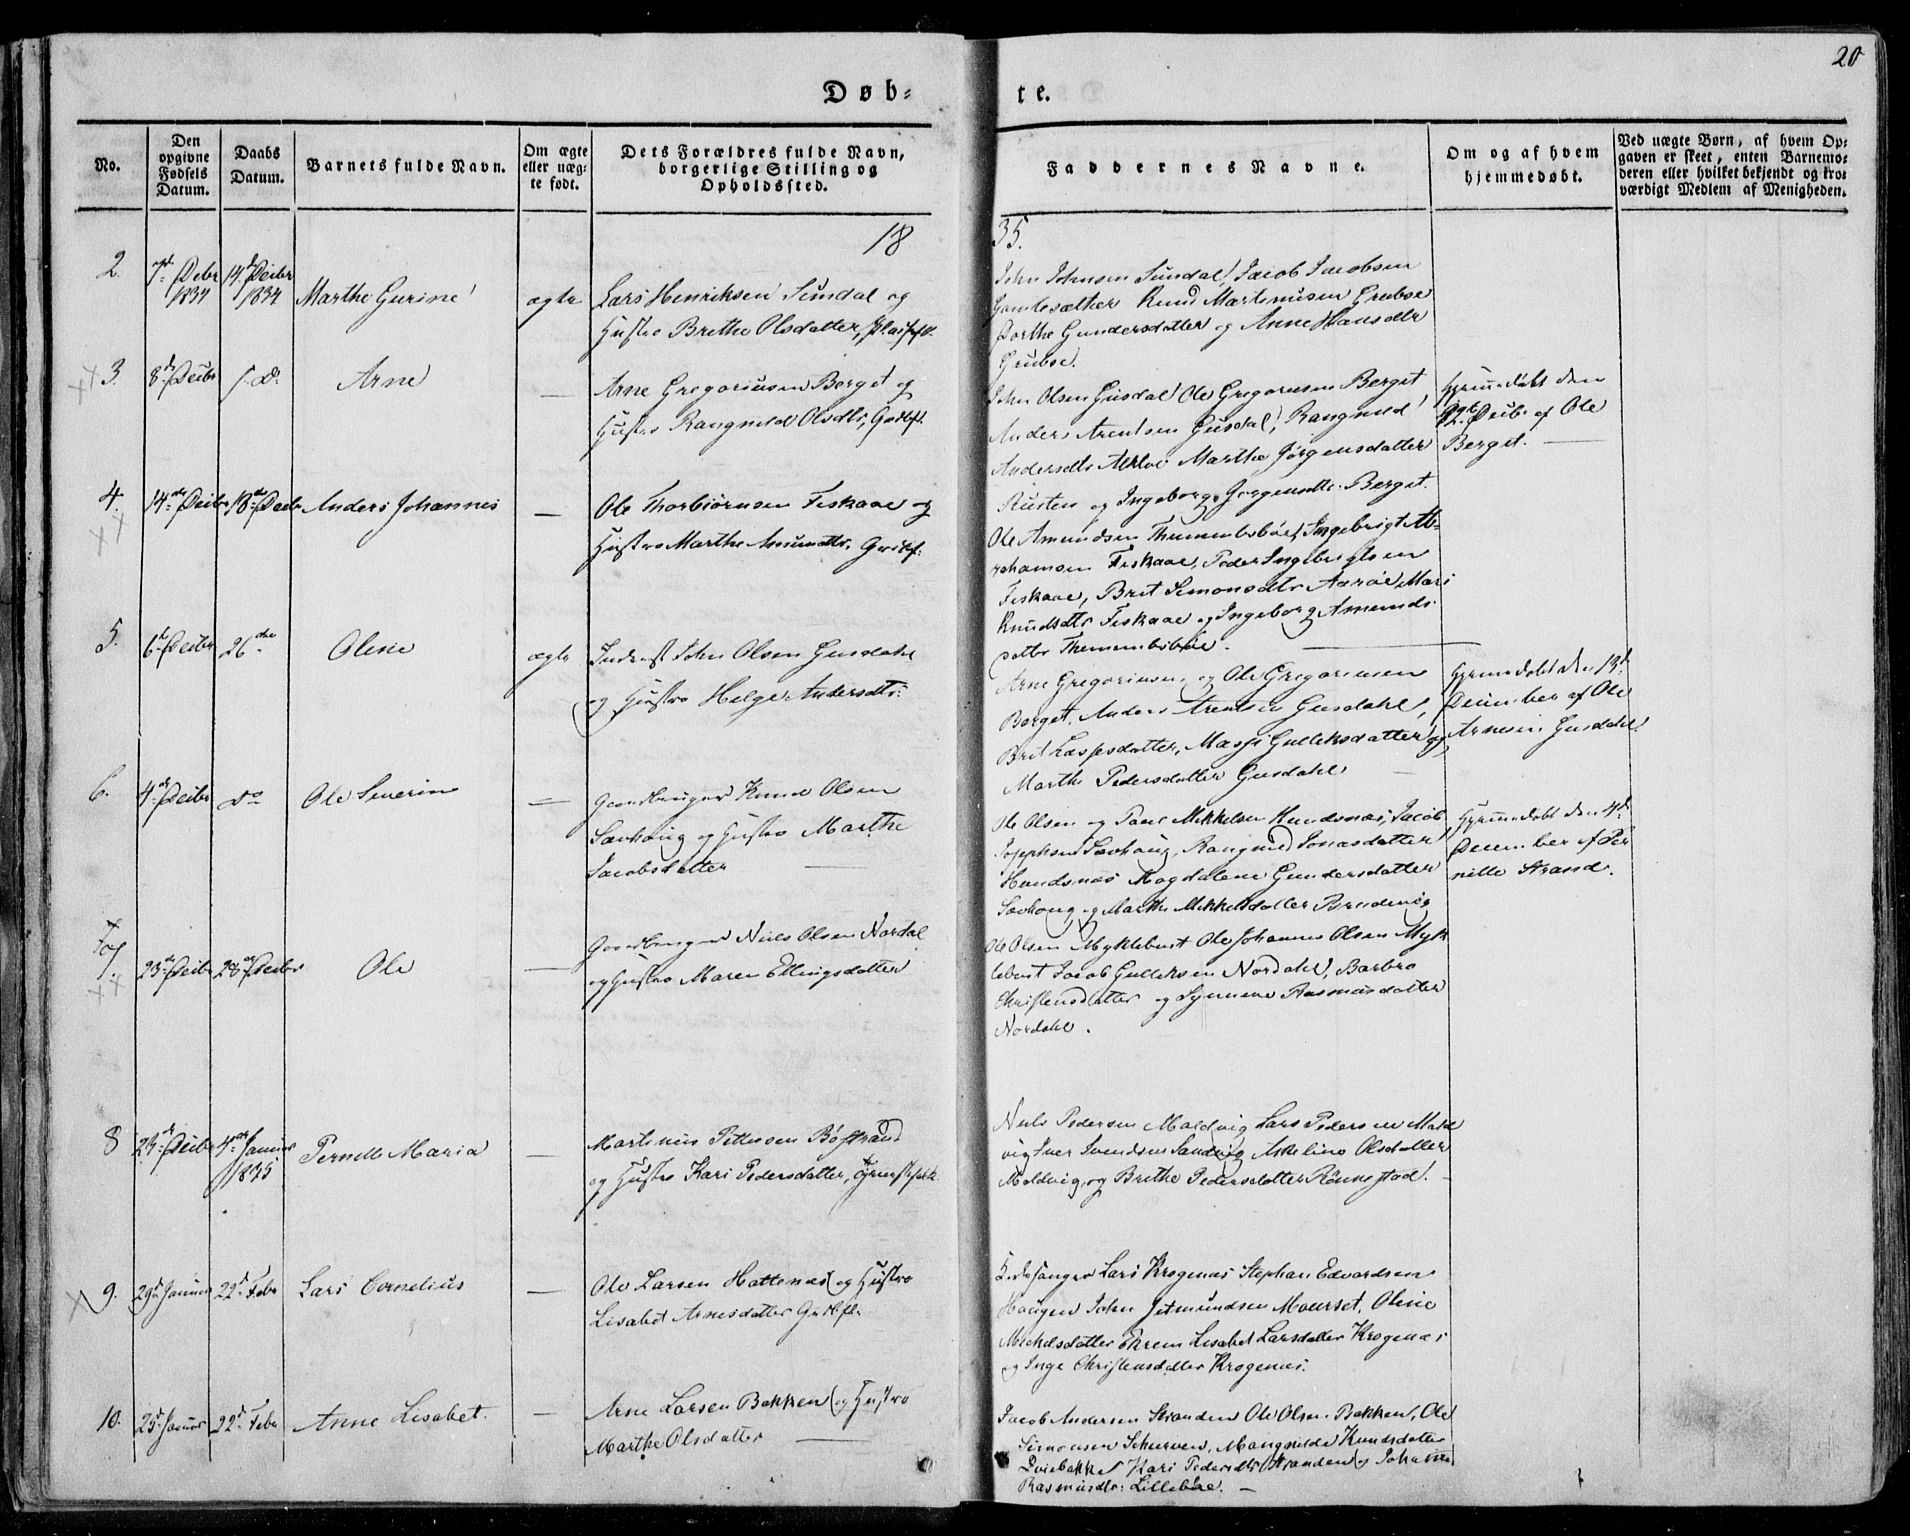 20
Døb-
te.
No.
Den opgivne Fødsels Datum.
Daabs Datum.
Barnets fulde Navn.
Om ægte eller uægte født.
Dets Forældres fulde Navn, borgerlige Stilling og Opholdssted.
Faddernes Navne.
Om og af hvem hjemmedøbt.
Ved uægte Børn, af hvem Opgaven er skeet, enten Barnemoderen eller hvilket bekjendt og troværdigt Medlem af Menigheden.
18
35.
2.
7de Debr 1834
14de Deibr 1834
Marthe Gurine
ægte
Lars Henriksen Sundal og
Hustro Brithe Olsdatter,
John Johnsen Sundal, Jacob Jacobsen
Gamlesæther Knud Martinusen Grubse
Dorthe Gundersdatter og Anne Hansdtr
Grubse.
3.
8de Deibr
Do
Arne
—
Arne Gregoriusen Berget og
Hustro Rangnild Olsdtr, Grdbf.
John Olsen Gusdal Ole Gregoriusen Berget
Anders Arentsen Gusdal, Rangnild
Andersdtr Marthe Jørgensdatter
Rusten og Ingeborg Jørgensdtr Berget.
Hjemmedøbt den
Deibr af Ole
Berget. —
4.
14de Deibr
18de Deibr
Anders Johannes
—
Ole Thorbiørnsen Fiskaae og
Hustro Marthe Grdbf.
Ole Amundsen Ingebrigt Ab-
rahamsen Fiskaae, Peder Ingebrigtsen
Fiskaae, Brit Simonsdtr Aarøe, Mari
Knudsdtr Fiskaae og Ingeborg Amunds-
datter
5.
6te Deibr
26de
Oline
ægte
Inderst John Olsen Gusdahl
og Hustro Helge Andersdtr:
Arne Gregoriusen og Ole Gregoriusen
Berget, Anders Arentsen Gusdahl,
Brit Laspesdatter, Massi Gulleksdatter og
Marthe Pedersdatter Gusdahl
Hjemmedøbt den 13d
December af Ole
Arnesen Gusdahl
6.
4de Deibr
Do
Ole Severin
—
Gaardbruger Knud Olsen
Savhoug og Hustro Marthe
Jacobsdatter —
Ole Olsen og Paul Mikkelsen Hundsnæs, Jacob
Josephsen Savhoug, Rangnild Jonasdatter
Hundsnæs Magdalene Gundersdatter
Savhoug og Marthe Mikkelsdatter Breidevig
Hjemmedøbt den 4d
December af Per-
nille Strand.
7.
23de Deibr
28de Deibr
Ole
—
Gaardbruger Niels Olsen Nordal
og Hustro Maren Ellingsdatter
Ole Olsen Myklebust Ole Johannes Olsen Myk
lebust Jacob Gulleksen Nordahl, Barbro
Christensdatter og Synneve Rasmusdatter
Nordahl.
8
24de Deibr
4de Januar 1835
Pernelle Maria
—
Martinus Pettersen Bøstrand
og Hustro Kari Pedersdatter,
Niels Pedersen Moldvig, Lars Pedersen Mold
vig Iver Svendsen Sandvig Akeline Olsdatter
Moldvig, og Brithe Pedersdatter Rønnestad.
9.
29d Januar
22d Febr
Lars Cornelius
—
Ole Larsen Hattenæs og Hustro
Lisabet Arnesdatter
Lars Krogenæs Stephan Edvardsen
Haugen John Jetmundsen Mourset, Oline
Mickelsdatter Ekrem Lisabet Larsdatter Krogenæs
og Inge Christensdatter Krogenæs.
10.
25d Januar
22d Febr
Anne Lisabet.
—
Arne Larsen Bakken og Hustro
Marthe Olsdatter —
Jacob Andersen Stranden Ole Olsen Bakken, Ole
Simonsen Skurven, Mangnilde Knudsdatter
Kari Pedersdtr Stranden og Johanne
Rasmusdtr: Lillebøe. —